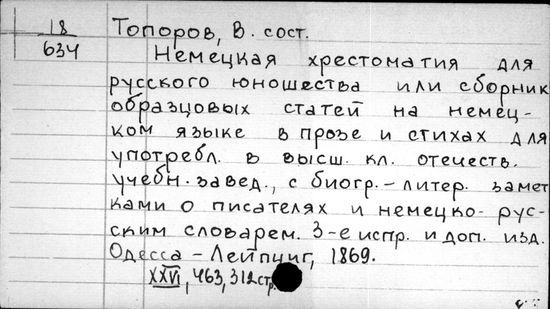 18
634
Топоров, В. сост.
Немецкая хрестоматия для
русского юношества или сборник
образцовых статей на немец-
ком языке в прозе и стихах для
употребл. в высш. кл. отечеств.
учебн. завед., с биогр.-литер. замет
ками о писателях и немецко-рус-
ским словарем. 3-е испр. и доп. изд.
Одесса - Лейпциг, 1869.
XXVI, 463, 312 стр.